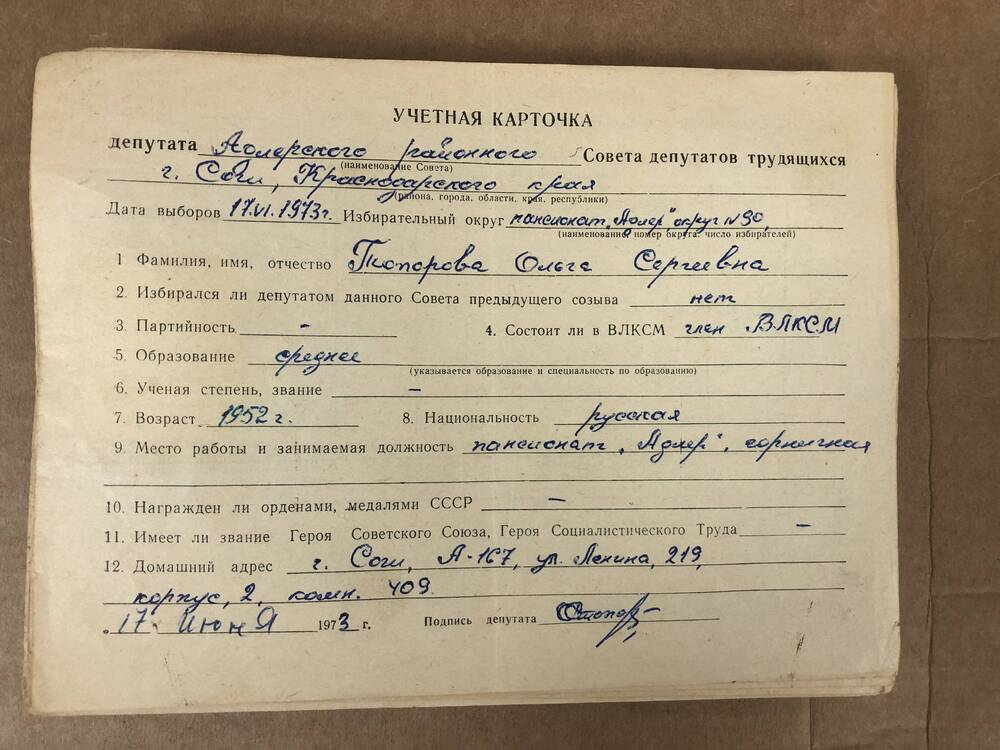 УЧЕТНАЯ КАРТОЧКА
депутата Адлерского районного Совета депутатов трудящихся
(наименование Совета)
г. Сочи, Краснодарского края
(района, города, области, края, республики)
Дата выборов 17.VI.1973г. Избирательный округ пансионат „Адлер", округ N 90,
(наименование, номер округа, число избирателей)
1 Фамилия, имя, отчество Топорова Ольга Сергеевна
2. Избирался ли депутатом данного Совета предыдущего созыва нет
3. Партийность - 4. Состоит ли в ВЛКСМ член ВЛКСМ
5. Образование среднее
(указывается образование и специальность по образованию)
6. Ученая степень, звание -
7. Возраст 1952 г. 8. Национальность русская
9. Место работы и занимаемая должность пансионат „Адлер", горничная
10. Награжден ли орденами, медалями СССР -
11. Имеет ли звание Героя Советского Союза, Героя Социалистического Труда -
12. Домашний адрес г. Сочи, А-167, ул. Ленина, 219,
корпус, 2, комн. 409.
„17" июня 1973 г. Подпись депутата